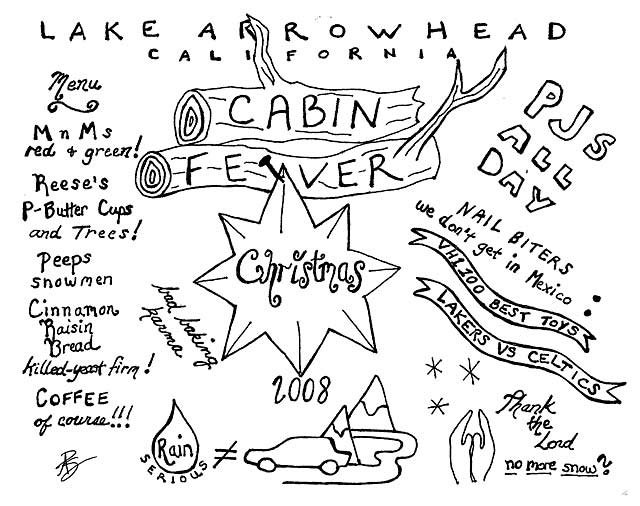 LAKE ARROWHEAD
CALIFORNIA
CABIN
FEVER
Christmas
2008
Menu
M n Ms
red + green!
Reese's
P-Butter Cups
and Trees!
Peeps
snowmen
Cinnamon
Raisin
Bread
killed-yeast firm!
COFFEE
of course!!!
bad baking
karma
Rain
SERIOUS
≠
PJs
ALL
DAY
NAIL BITERS
we don't get in Mexico:
VH1 100 BEST TOYS
LAKERS VS CELTICS
Thank
the
Lord
no more snow?